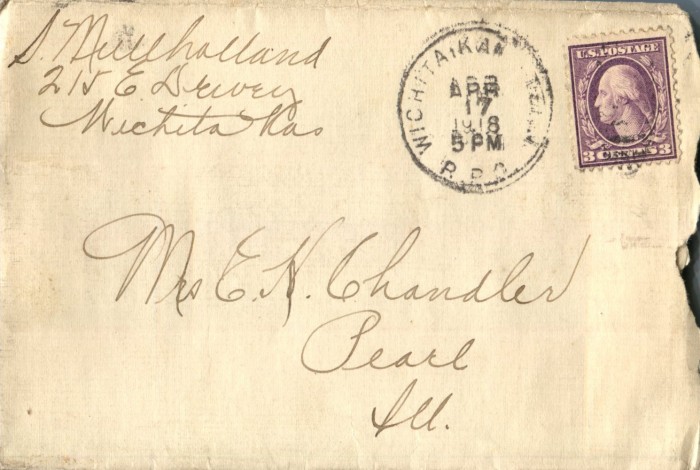 S. Mullholland
215 E. Dewey
Wichita Kas
WICHITA, KAN
APR
17
1918
5 PM
R. P. O.
U.S. POSTAGE
3 CENTS 3
Mrs E. H. Chandler
Pearl
Ill.